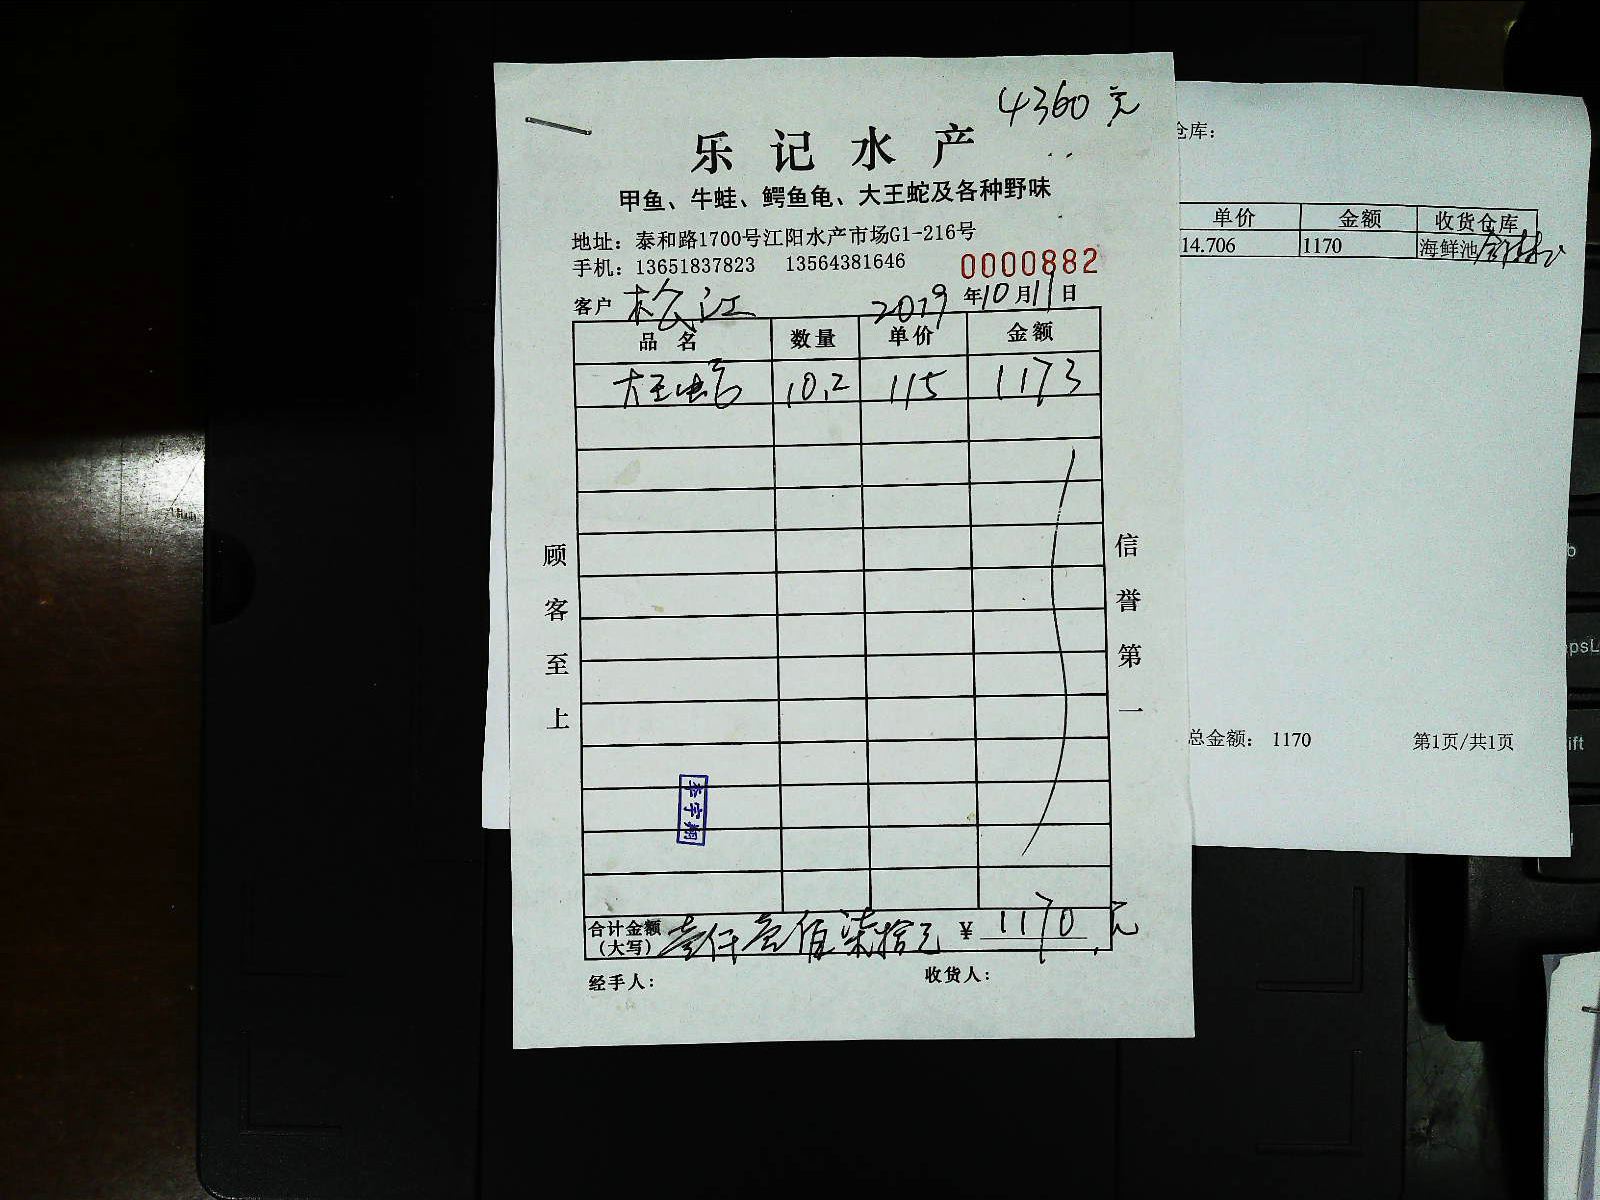 4360元
乐记水产
甲鱼、牛蛙、鳄鱼龟、大王蛇及各种野味
地址：泰和路1700号江阳水产市场G1-216号
手机：13651837823 13564381646
0000882
客户 松江 2019年10月19日
品名 数量 单价 金额
大王蛇 10.2 115 1173
顾客至上
信誉第一
李宇翔
合计金额（大写） 壹仟壹佰柒拾元 ¥ 1170元
经手人： 收货人：
仓库：
单价 金额 收货仓库
14.706 1170 海鲜池
总金额： 1170 第1页/共1页